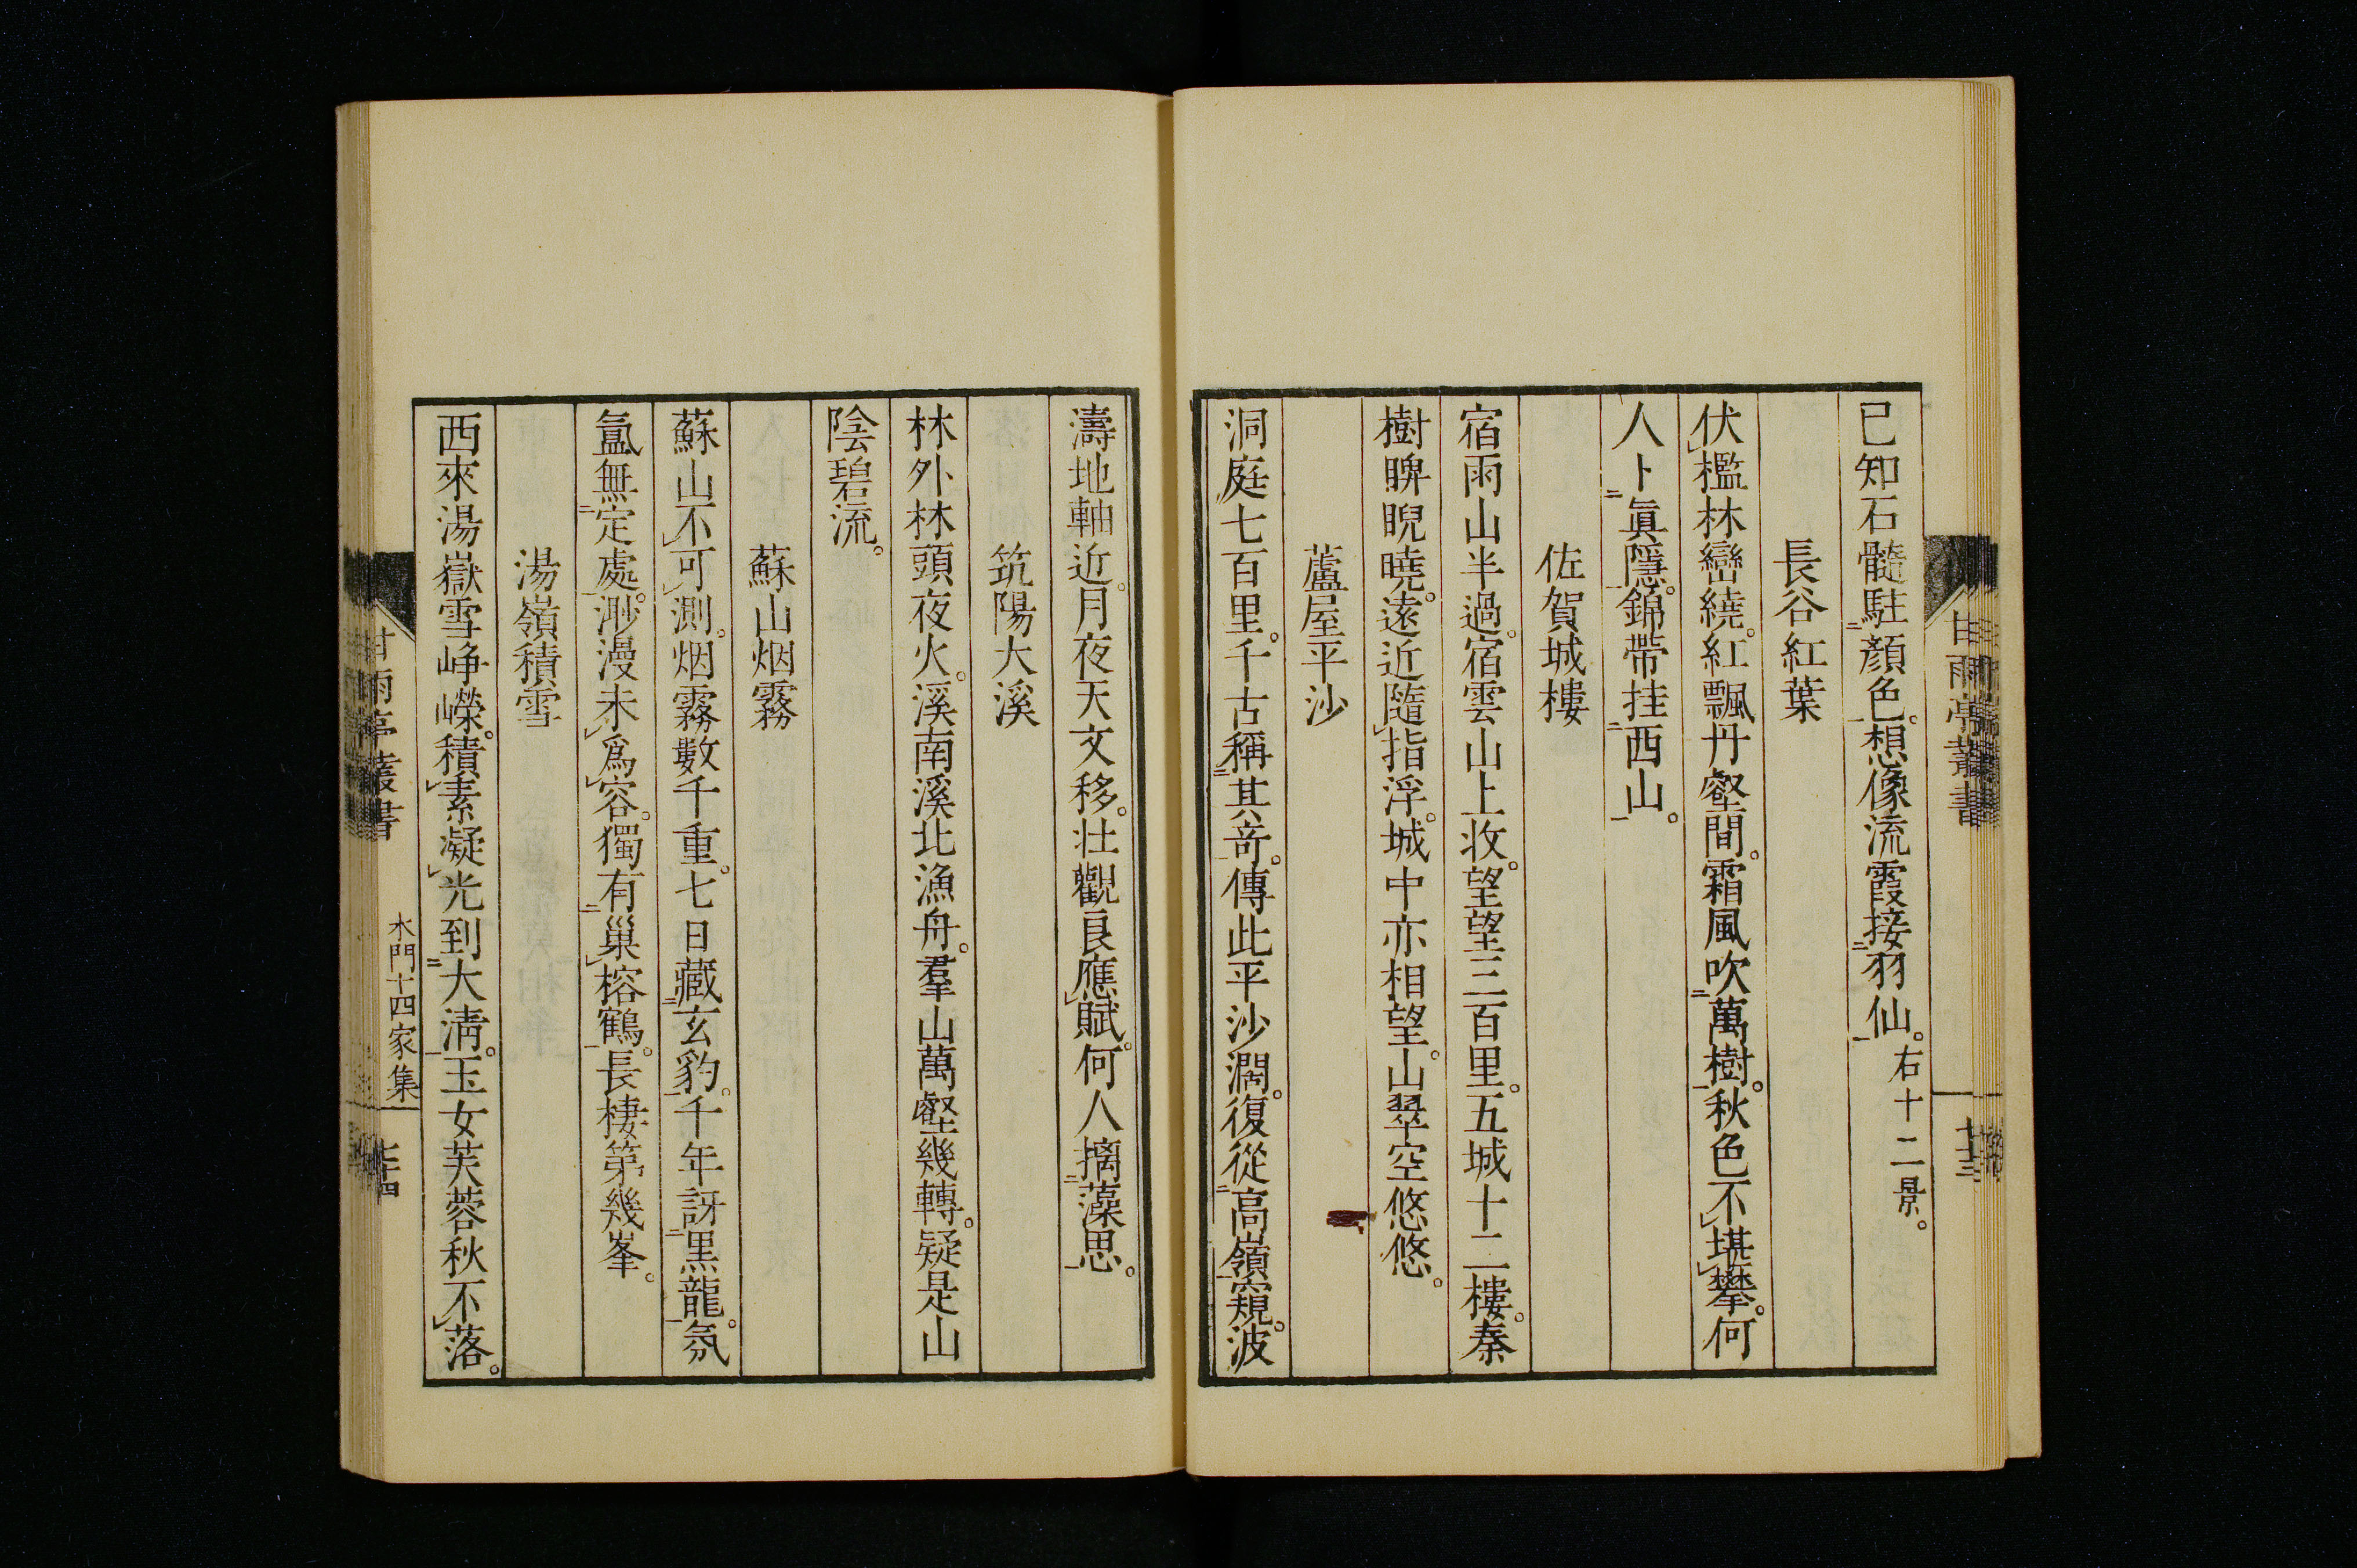 已知石髓駐顏色。想像流霞接羽仙。右十二景。
長谷紅葉
伏檻林巒繞。紅飄丹壑間。霜風吹萬樹。秋色不堪攀。何
人卜眞隱。錦帶挂西山。
佐賀城樓
宿雨山半過。宿雲山上收。望望三百里。五城十二樓。秦
樹睥睨曉。遠近隨指浮。城中亦相望。山翠空悠悠。
蘆屋平沙
洞庭七百里。千古稱其奇。傳此平沙濶。復從高嶺窺。波
甘雨亭叢書
七十三
濤地軸近。月夜天文移。壮觀良應賦。何人摛藻思。
筑陽大溪
林外林頭夜火。溪南溪北漁舟。羣山萬壑幾轉。疑是山
陰碧流。
蘇山烟霧
蘇山不可測。烟霧數千重。七日藏玄豹。千年訝黒龍。氛
氳無定處。渺漫未爲容。獨有巢榕鶴。長棲第幾峯。
湯嶺積雪
西來湯嶽雪崢嶸。積素凝光到大淸。玉女芙蓉秋不落。
甘雨亭叢書
木門十四家集
七十四